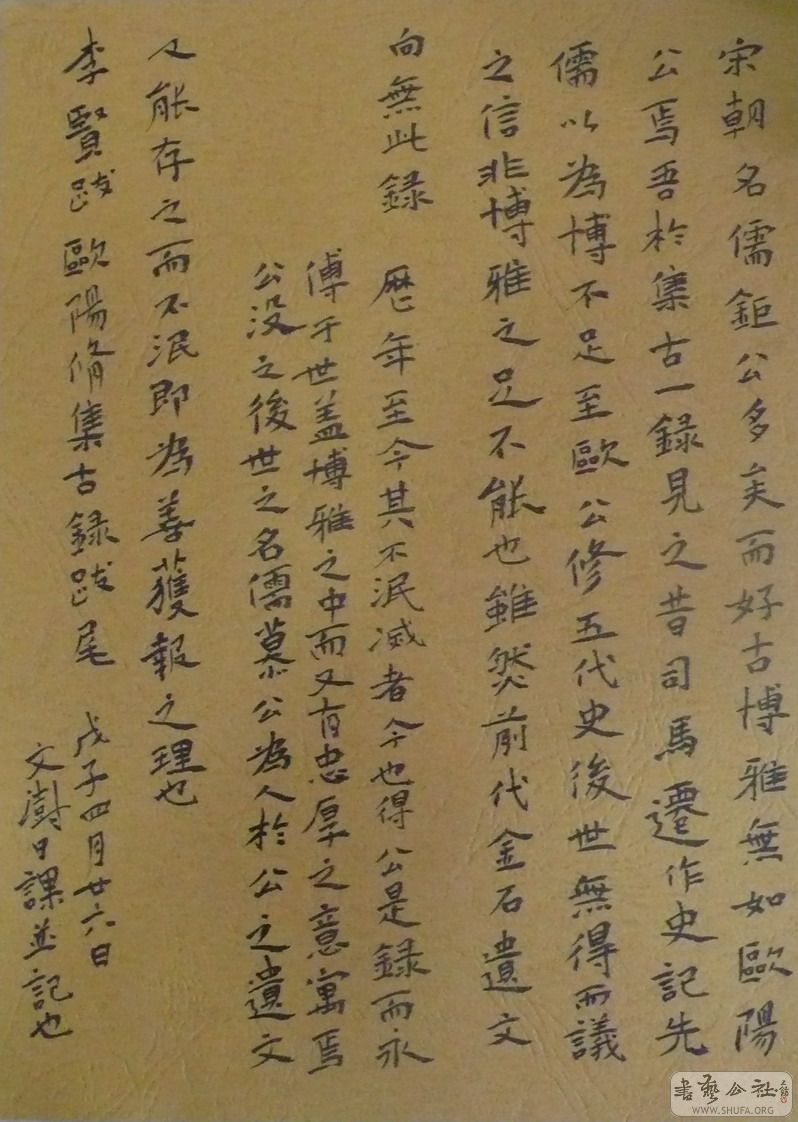 宋朝名儒鉅公多矣而好古博雅無如歐陽
公焉吾於集古一錄見之昔司馬遷作史記先
儒以為博不足至歐公修五代史後世無得而議
之信非博雅之足不能也雖然前代金石遺文
向無此録 歷年至今其不泯滅者今也得公是録而永
傳于世蓋博雅之中而又有忠厚之意寓焉
公没之後世之名儒慕公為人於公之遺文
又能存之而不泯即為善獲報之理也
李賢跋歐陽脩集古録跋尾 戊子四月廿六日
文澍日課並記也
書藝公社
WWW.SHUFA.ORG